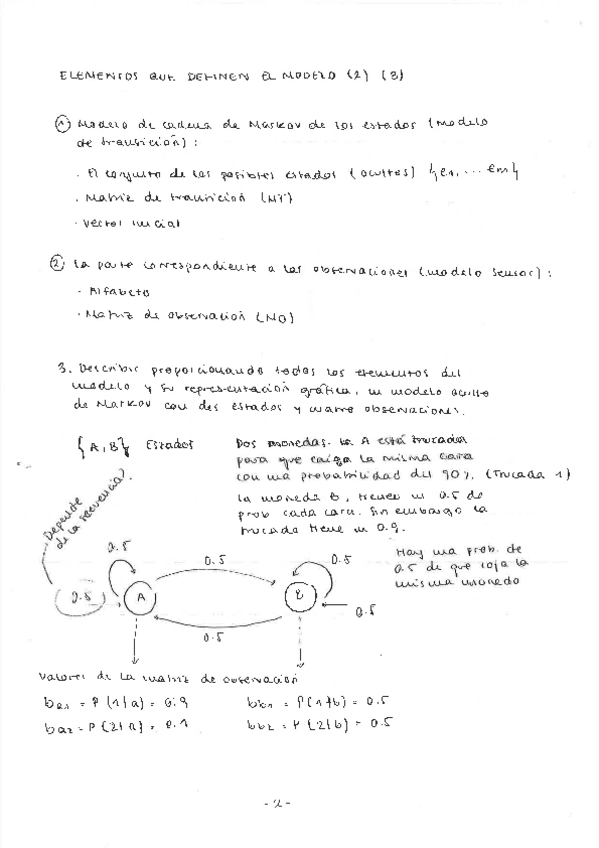 ELEMENTOS QUE DEFINEN EL MODELO (2) (3)
① Modelo de cadena de Markov de los estados (modelo
de transición):
· El conjunto de los posibles estados (ocultos) {e1, ... em}
· Matriz de transición (MT)
· Vector inicial
② La parte correspondiente a las observaciones (modelo sensor):
· Alfabeto
· Matriz de observación (MO)
3. Describir proporcionando todos los elementos del
modelo y su representación gráfica, un modelo oculto
de Markov con dos estados y cuatro observaciones.
{A, B} Estados
Dos monedas. La A está trucada
para que caiga la misma cara
con una probabilidad del 90%. (Trucada 1)
la moneda B, tienen un 0.5 de
prob cada cara. Sin embargo la
trucada tiene un 0.9.
Depende
de la secuencia?
Hay una prob. de
0.5 de que coja la
misma moneda
0.5
0.5
0.5
0.5
A
B
0.5
0.5
Valores de la matriz de observación
ba1 = P(1/a) = 0.9
bb1 = P(1/b) = 0.5
ba2 = P(2/a) = 0.1
bb2 = P(2/b) = 0.5
- 2 -